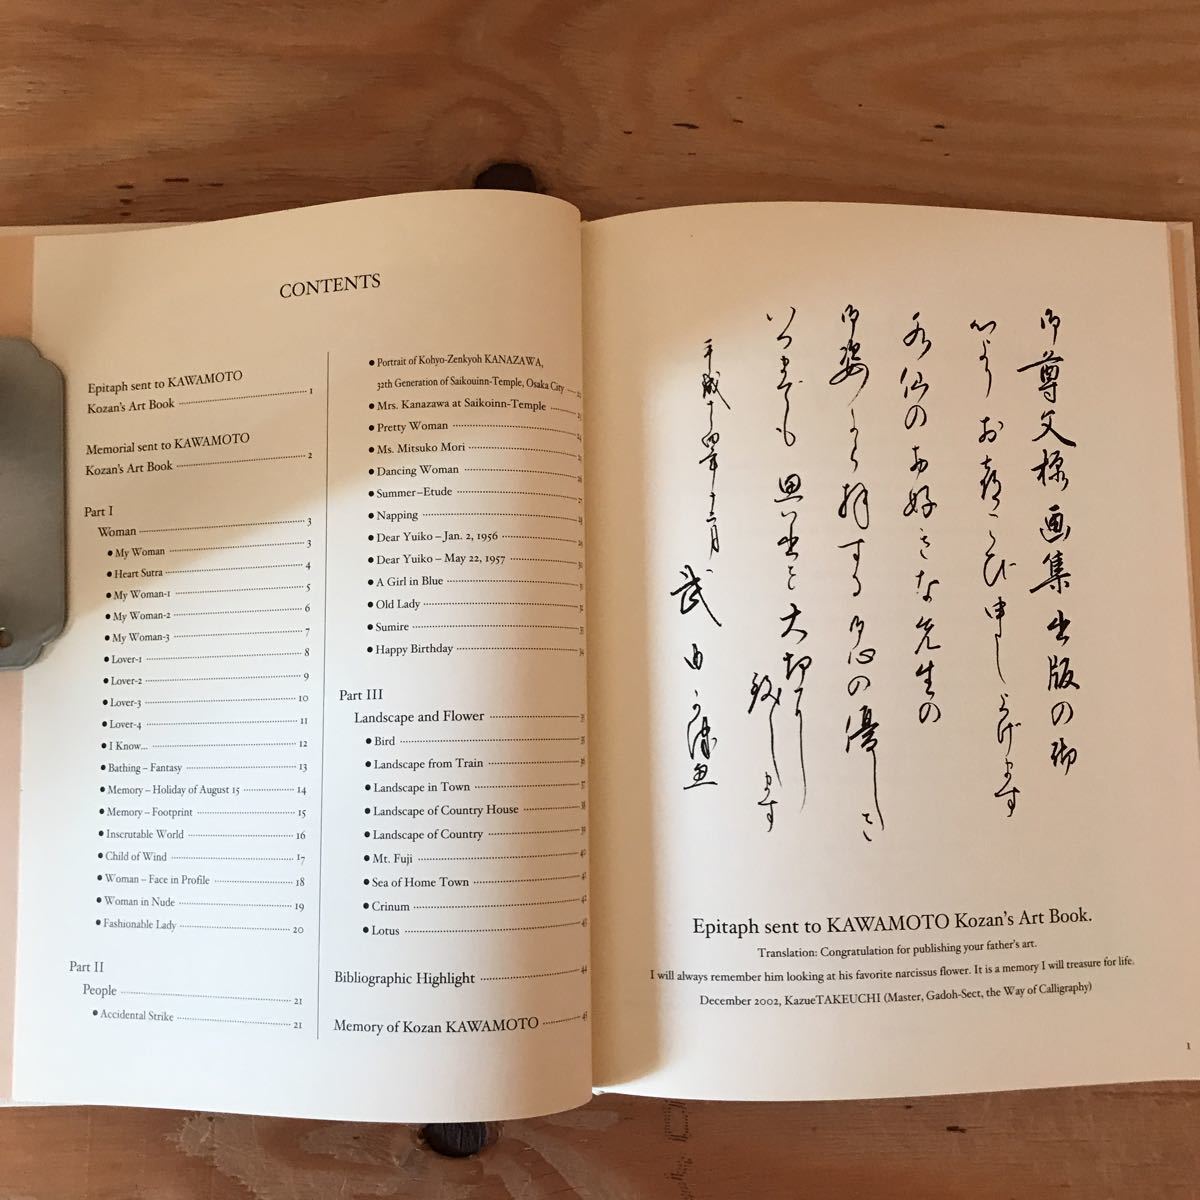 CONTENTS
Epitaph sent to KAWAMOTO
Kozan's Art Book 1
Memorial sent to KAWAMOTO
Kozan's Art Book 2
Part I
Woman 3
● My Woman 3
● Heart Sutra 4
● My Woman-1 5
● My Woman-2 6
● My Woman-3 7
● Lover-1 8
● Lover-2 9
● Lover-3 10
● Lover-4 11
● I Know... 12
● Bathing – Fantasy 13
● Memory – Holiday of August 15 14
● Memory – Footprint 15
● Inscrutable World 16
● Child of Wind 17
● Woman – Face in Profile 18
● Woman in Nude 19
● Fashionable Lady 20
Part II
People 21
● Accidental Strike 21
● Portrait of Kohyo-Zenkyoh KANAZAWA,
32th Generation of Saikouinn-Temple, Osaka City 22
● Mrs. Kanazawa at Saikoinn-Temple 23
● Pretty Woman 24
● Ms. Mitsuko Mori 25
● Dancing Woman 26
● Summer–Etude 27
● Napping 28
● Dear Yuiko – Jan. 2, 1956 29
● Dear Yuiko – May 22, 1957 30
● A Girl in Blue 31
● Old Lady 32
● Sumire 33
● Happy Birthday 34
Part III
Landscape and Flower 35
● Bird 35
● Landscape from Train 36
● Landscape in Town 37
● Landscape of Country House 38
● Landscape of Country 39
● Mt. Fuji 40
● Sea of Home Town 41
● Crinum 42
● Lotus 43
Bibliographic Highlight 44
Memory of Kozan KAWAMOTO 45
御尊父様画集出版の御
心よりお慶こび申し上げます
水仙のお好きな先生の
御姿から拝する御心の優しさ
いつまでも思い出を大切に
致します
平成十四年十二月
武内
Epitaph sent to KAWAMOTO Kozan's Art Book.
Translation: Congratulation for publishing your father's art.
I will always remember him looking at his favorite narcissus flower. It is a memory I will treasure for life.
December 2002, KazueTAKEUCHI (Master, Gadoh-Sect, the Way of Calligraphy)
1